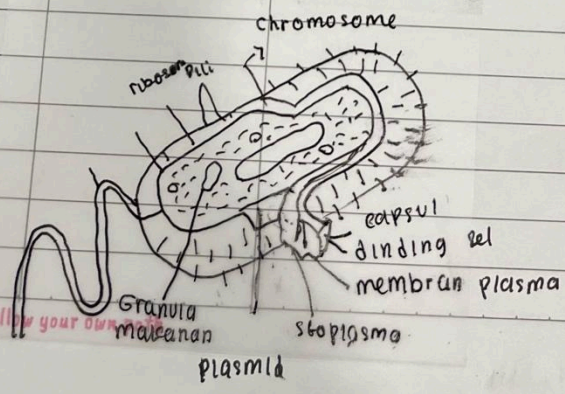 chromosome
ribosom
pili
capsul
dinding sel
membran plasma
Granula
makanan
stoplasma
plasmid
llow your own path